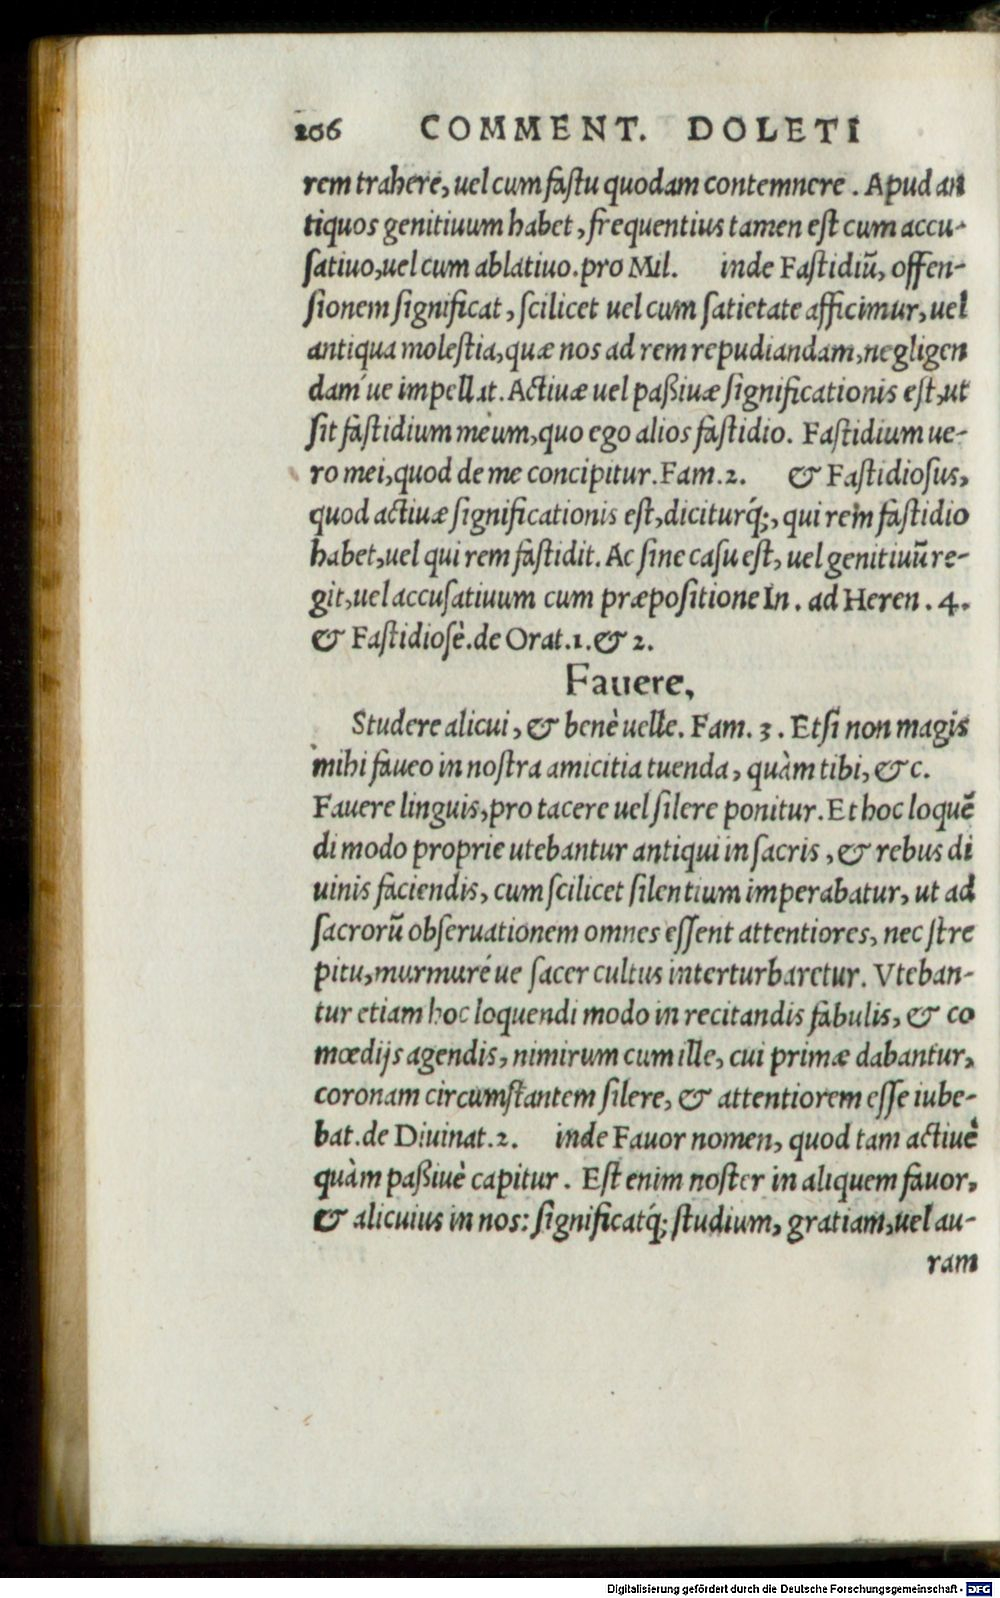 206 COMMENT. DOLETI
rem trahere, uel cum fastu quodam contemnere. Apud an
tiquos genitiuum habet, frequentius tamen est cum accu-
satiuo, uel cum ablatiuo. pro Mil. inde Fastidiũ, offen-
sionem significat, scilicet uel cum satietate afficimur, uel
antiqua molestia, quæ nos ad rem repudiandam, negligen
dam´ue impellat. Actiuæ uel paßiuæ significationis est, ut
sit fastidium meum, quo ego alios fastidio. Fastidium ue-
ro mei, quod de me concipitur. Fam. 2. & Fastidiosus,
quod actiuæ significationis est, diciturq́;, qui rem fastidio
habet, uel qui rem fastidit. Ac sine casu est, uel genitiuũ re-
git, uel accusatiuum cum præpositione In. ad Heren. 4.
& Fastidiosè. de Orat. 1. & 2.
Fauere,
Studere alicui, & benè uelle. Fam. 3. Etsi non magis
mihi faueo in nostra amicitia tuenda, quàm tibi, &c.
Fauere linguis, pro tacere uel silere ponitur. Et hoc loquẽ
di modo proprie utebantur antiqui in sacris, & rebus di
uinis faciendis, cum scilicet silentium imperabatur, ut ad
sacrorũ obseruationem omnes essent attentiores, nec stre
pitu, murmuré ue sacer cultus interturbaretur. Vteban-
tur etiam hoc loquendi modo in recitandis fabulis, & co
mœdijs agendis, nimirum cum ille, cui primæ dabantur,
coronam circumstantem silere, & attentiorem esse iube-
bat. de Diuinat. 2. inde Fauor nomen, quod tam actiuè
quàm paßiuè capitur. Est enim noster in aliquem fauor,
& alicuius in nos: significatq́; studium, gratiam, uel au-
ram
Digitalisierung gefördert durch die Deutsche Forschungsgemeinschaft - DFG